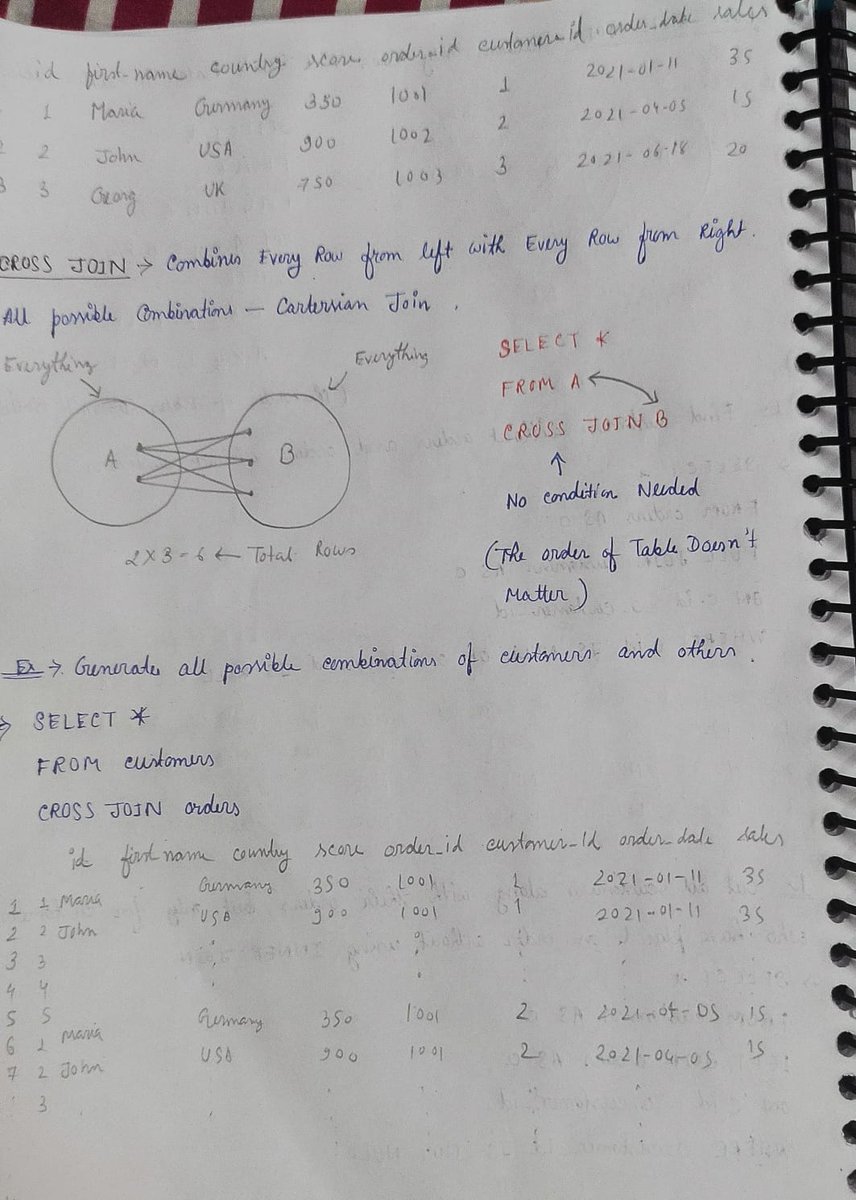 id first-name country score order-id customer-id order-date sales
1 Maria Germany 350 1001 1 2021-01-11 35
2 2 John USA 900 1002 2 2021-04-05 15
3 3 Georg UK 750 1003 3 2021-06-18 20
CROSS JOIN → Combines Every Row from left with Every Row from Right.
All possible Combinations — Cartersian Join.
Everything
Everything
A
B
2×3=6 ← Total Rows
SELECT *
FROM A
CROSS JOIN B
No condition Needed
(The order of Table Doesn't
Matter)
Ex → Generate all possible combinations of customers and others.
→ SELECT *
FROM customers
CROSS JOIN orders
id first name country score order_id customer_Id order_date sales
1 1 Maria Germany 350 1001 1 2021-01-11 35
2 2 John USA 900 1001 1 2021-01-11 35
3 3
4 4
5 5
6 1 Maria Germany 350 1001 2 2021-04-05 15
7 2 John USA 900 1001 2 2021-04-05 15
3